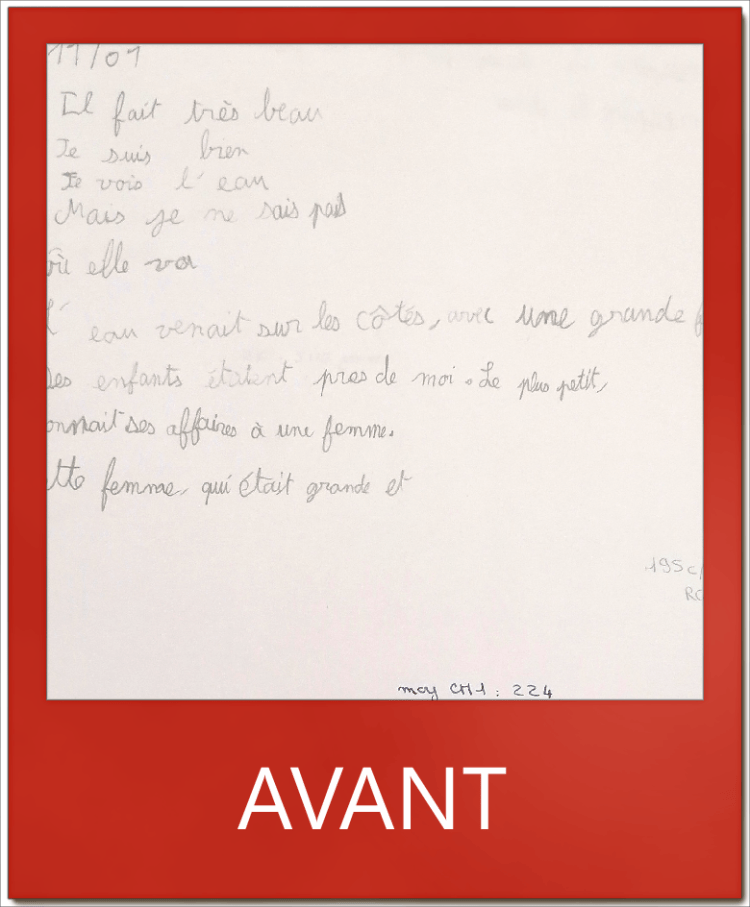 11/01
Il fait très beau
Je suis bien
Je vois l'eau
Mais je ne sais pas
où elle va
l'eau venait sur les côtés, avec une grande f
des enfants étaient pres de moi. Le plus petit,
onnait ses affaires à une femme.
tte femme, qui était grande et
195 c/
RC
moy CH1 : 224
AVANT